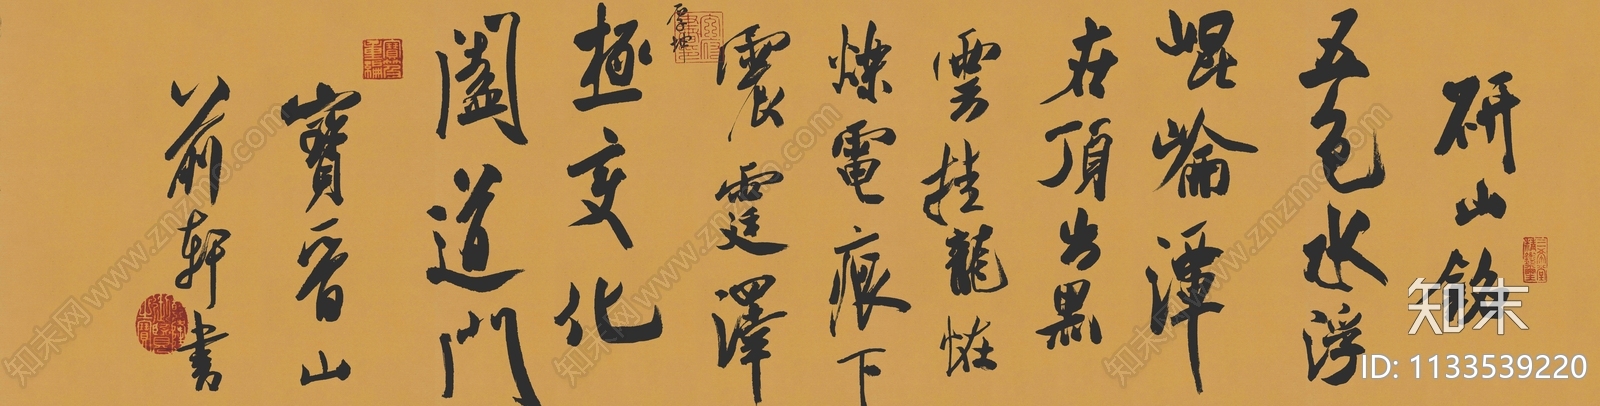 研山銘
五色水浮
崐崘潭
在頂出黑
雲挂龍怪
爍電痕下
震霆澤
厚坤
極变化
闔道門
寶晉山
前軒書
知末
ID: 1133539220
知末网www.znzmo.com